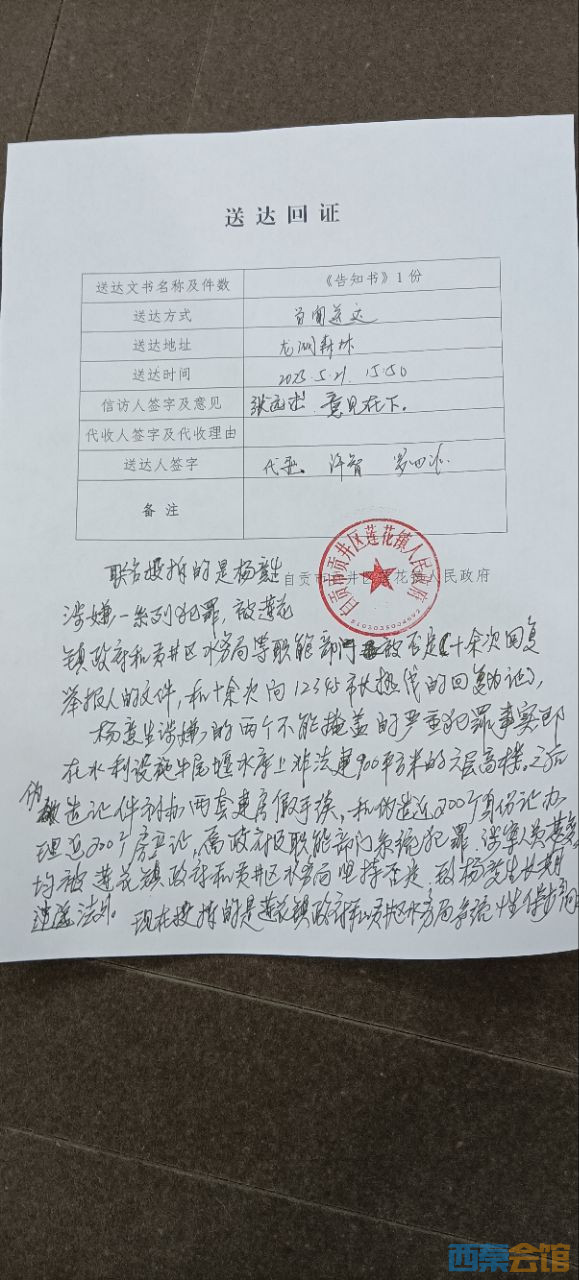 送达回证
送达文书名称及件数 《告知书》1份
送达方式 当面送达
送达地址 龙湖森林
送达时间 2025.5.21. 15:50
信访人签字及意见 意见在下。
代收人签字及代收理由
送达人签字
备注
自贡市贡井区莲花镇人民政府
自贡市贡井区莲花镇人民政府
联名投拆的是杨
涉嫌一系列犯罪，被莲花
镇政府和贡井区水务局等职能部门 否定（十余次回复
举报人的文件，和十余次向12345市长热线的回复为证），
杨 生涉嫌的两个不能掩盖的严重犯罪事实即
在水利设施牛尾堰水库上非法建900平方米的六层高楼。之后
伪造证件 办两套建房假手续，和伪造近200个身份证办
理近200个房产证，属政府区职能部门系统犯罪，涉案人员
均被莲花镇政府和贡井区水务局坚持否定，致杨 生长期
逍遥法外。现在投拆的是莲花镇政府和贡井区水务局系统性保护
西秦会馆